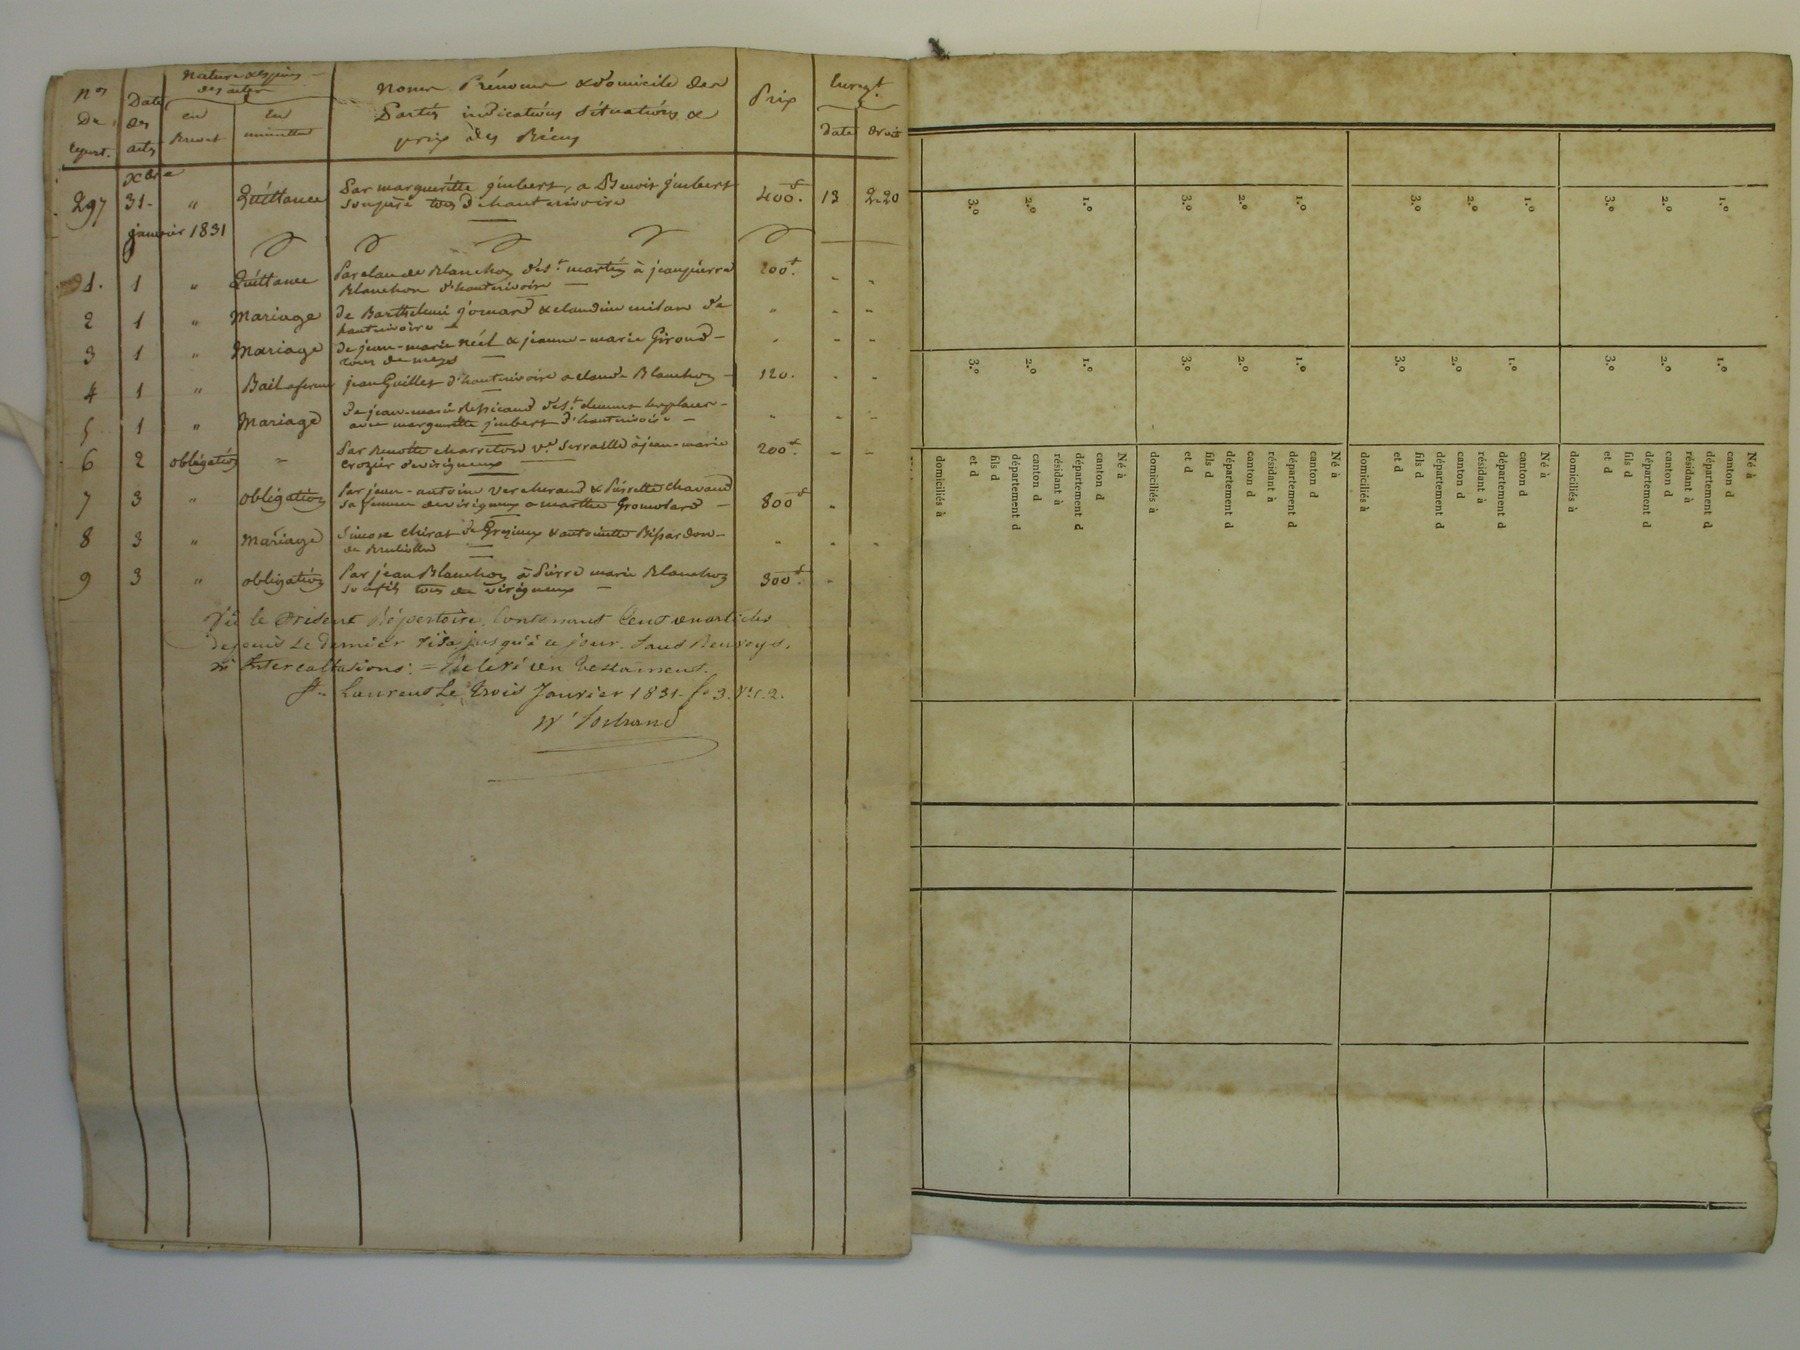 nos
Du
Repert.
Date
des
actes
Nature & espèces
des actes
en
Brevet
En
minutte
Noms Prénoms & Domicile des
Partiés indicatiöns situatiöns &
prix des Biens
Prix
Enregt
Date
droit
Xbre
297 31 " Quéttance Par margueritte jimbert, a Benoit jimbert 400f. 13 2.20
son père tous d'hauterivoire
janvier 1831
1. 1 " Quéttance Par claude Blanchon de st. martin à jean pierre 200f. - -
Blanchon d'hauterivoire
2 1 " Mariage de Barthelemi jomard & claudine milan de " - -
hauterivoire
3 1 " Mariage de jean-marie Néel & jeanne-marie Giroud " - -
tous de meys
4 1 " Bail a ferme jean Guillet d'hauterivoire a claude Blanchon 120. - -
5 1 " Mariage de jean-marie de st. les places " - -
avec marguerite jimbert d'hauterivoire
6 2 obligatiön - Par Benoitte charreton ve. à jean-marie 200f - -
crozier de virigneux
7 3 " obligatiön Par jean-antoine Vercherand & Pierrette chavand 800f -
sa femme de virigneux a marthe
8 3 " Mariage Simon chirat de Grezieux & antoinette Bissardon " - -
de Brullioles
9 3 " obligatiön Par jean Blanchon à Pierre marie Blanchon 300f. -
son fils tous de virigneux
Vu le Present Répertoire, Contenant Cent un articles
depuis Le dernier visa jusqu'à ce jour. Sans Renvoys,
ni Intercallations: =
St. Laurent Le trois Janvier 1831. fo 3. Vo. c. 2.
1.º
2.º
3.º
1.º
2.º
3.º
1.º
2.º
3.º
1.º
2.º
3.º
1.º
2.º
3.º
1.º
2.º
3.º
1.º
2.º
3.º
1.º
2.º
3.º
Né à
canton d
département d
résidant à
canton d
département d
fils d
et d
domiciliés à
Né à
canton d
département d
résidant à
canton d
département d
fils d
et d
domiciliés à
Né à
canton d
département d
résidant à
canton d
département d
fils d
et d
domiciliés à
Né à
canton d
département d
résidant à
canton d
département d
fils d
et d
domiciliés à